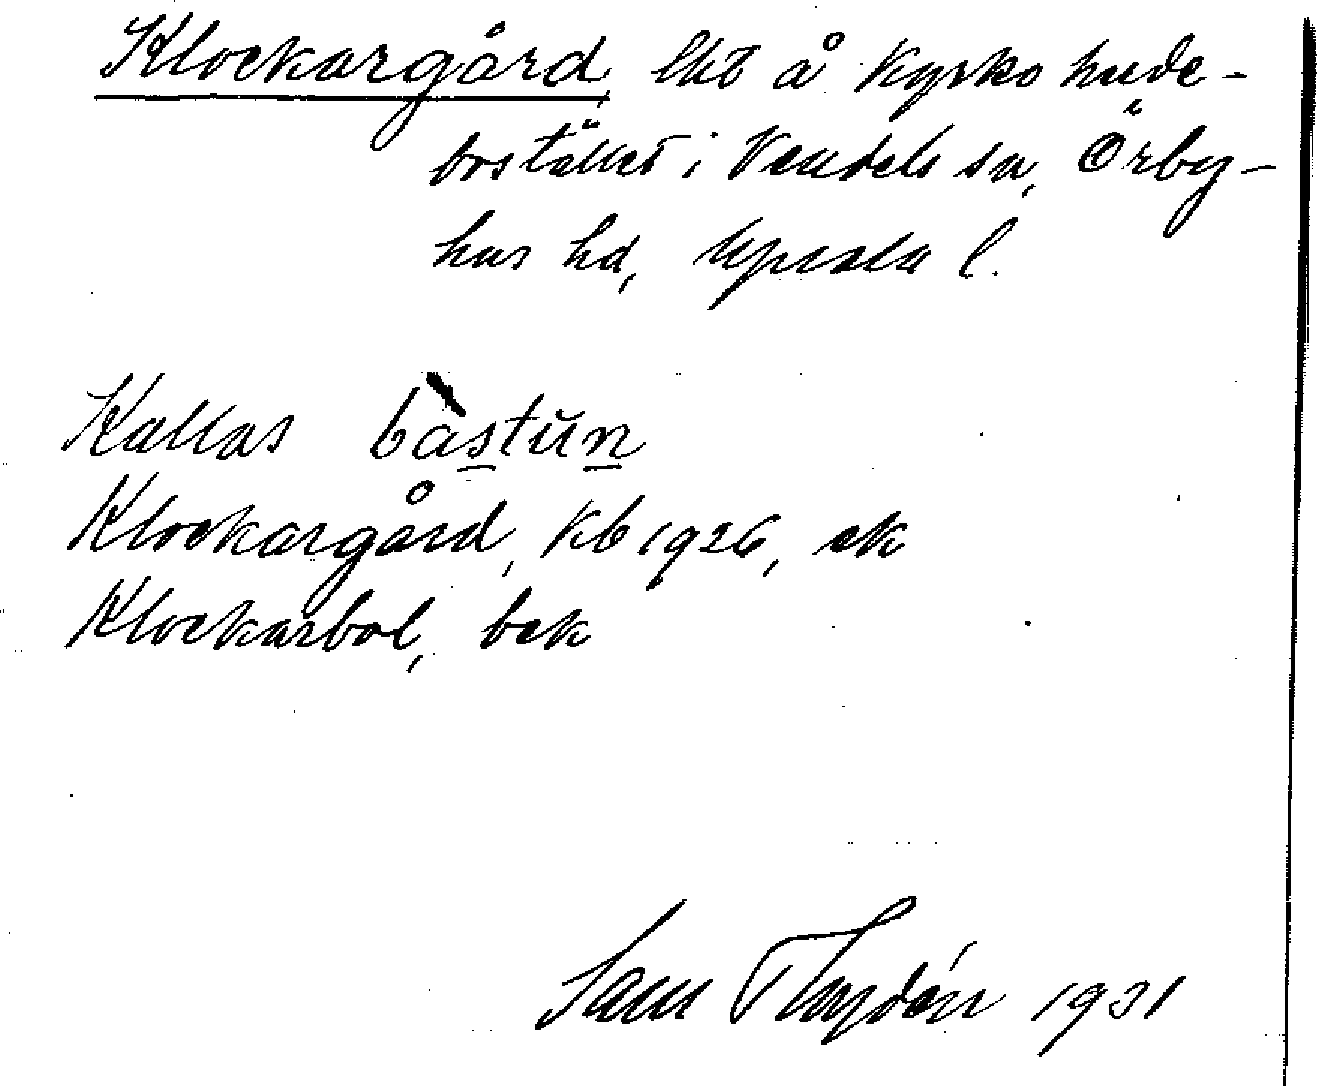 Klockargård, lht å Kyrkohude-
bostället i Vendels sn, Örby-
hus hd, Upsala l.
Kallas bàstŭn
Klockargård, Kb 1926, ek
Klockarbol, bek
Sam Thydén 1931